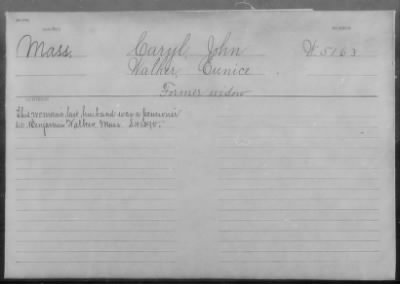 Mass.
Caryl, John
W 5163
Walker, Eunice
Former widow
This woman's last husband was a pensioner
see Benjamin Walker Mass.